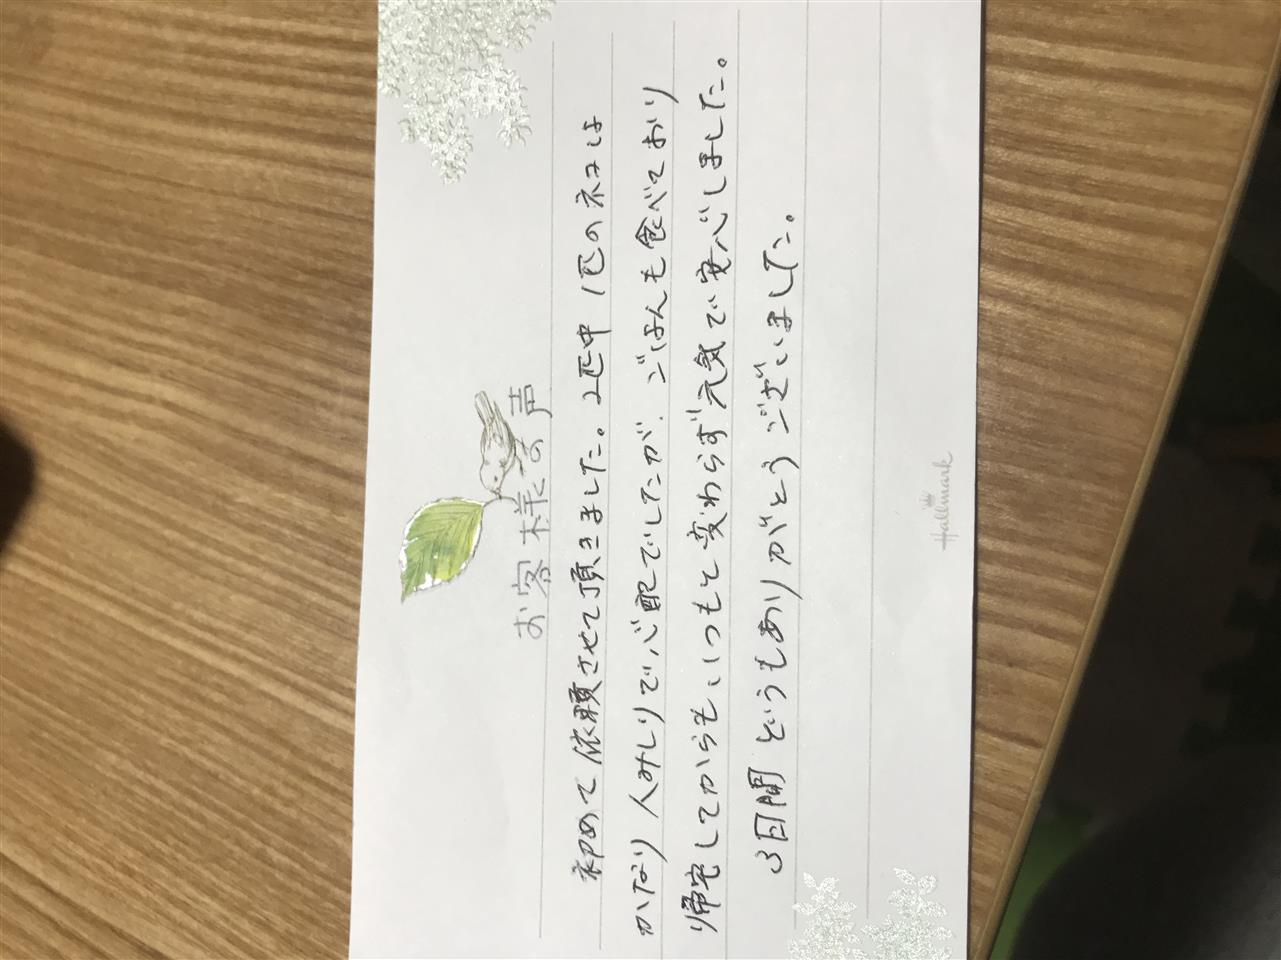 お客様の声
初めて依頼させて頂きました。2匹中1匹のネコは
かなり人みしりで心配でしたが、ごはんも食べており
帰宅してからもいつもと変わらず元気で安心しました。
3日間どうもありがとうございました。
Hallmark